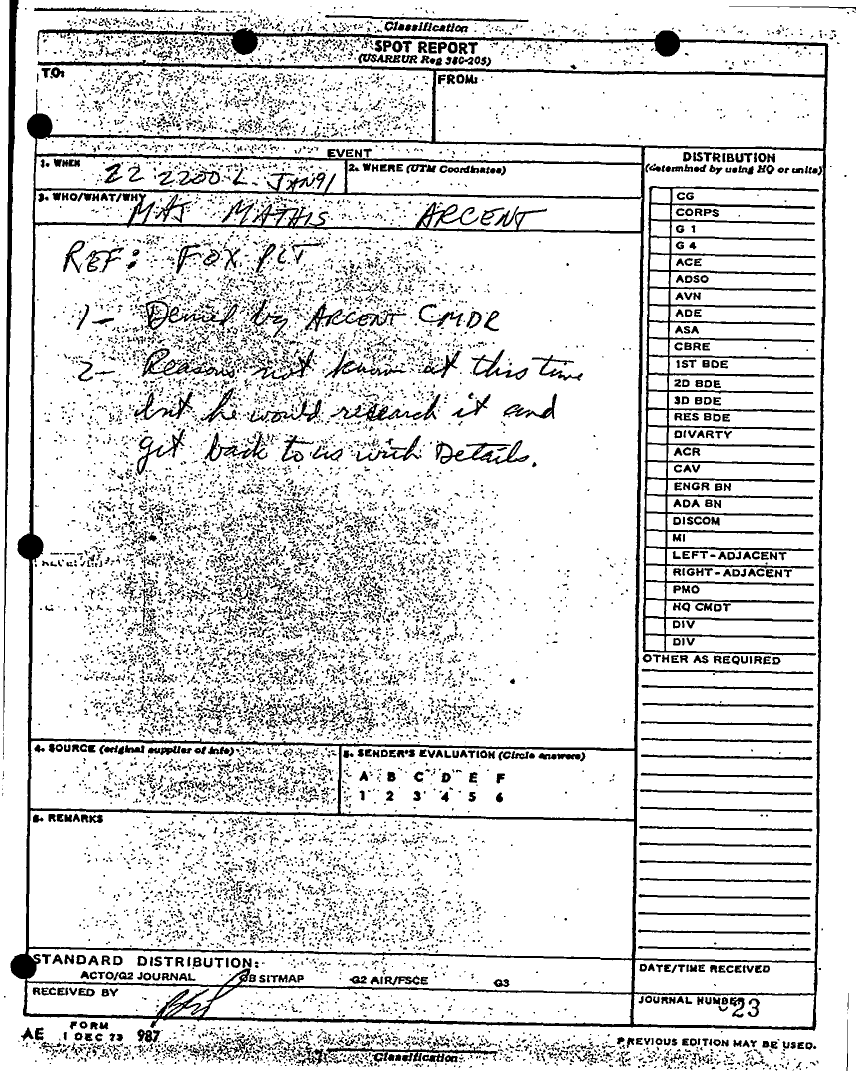 Classification
SPOT REPORT
(USAREUR Reg 380-205)
TO:
FROM:
EVENT
1. WHEN
22 2200 L JAN91
2. WHERE (UTM Coordinates)
3. WHO/WHAT/WHY
MAJ MATHIS ARCENT
REF: FOX PLT
1- Denied by ARCENT CMDR
2- Reasons not known at this time
but he would research it and
get back to us with Details.
4. SOURCE (original supplier of info)
5. SENDER'S EVALUATION (Circle answers)
A B C D E F
1 2 3 4 5 6
6. REMARKS
DISTRIBUTION
(determined by using HQ or units)
CG
CORPS
G 1
G 4
ACE
ADSO
AVN
ADE
ASA
CBRE
1ST BDE
2D BDE
3D BDE
RES BDE
DIVARTY
ACR
CAV
ENGR BN
ADA BN
DISCOM
MI
LEFT-ADJACENT
RIGHT-ADJACENT
PMO
HQ CMDT
DIV
DIV
OTHER AS REQUIRED
STANDARD DISTRIBUTION:
ACTO/G2 JOURNAL OB SITMAP G2 AIR/FSCE G3
RECEIVED BY
DATE/TIME RECEIVED
JOURNAL NUMBER
23
AE FORM 987
1 DEC 73
PREVIOUS EDITION MAY BE USED.
Classification